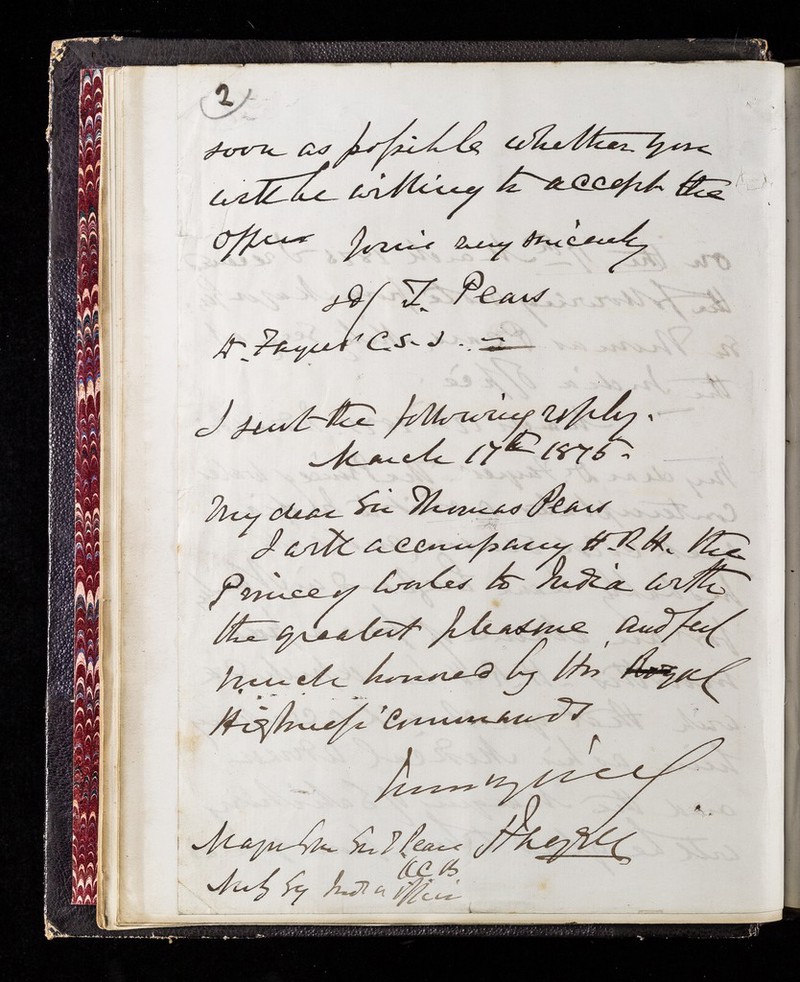 2
soon as possible whether you
will be willing to accept the
offer Yours very sincerely
sd/ T. Pears
Dr. Fayrer C.S.I.
I sent the following reply.
March 17th 1875.
My dear Sir Thomas Pears
I will accompany H.R.H. the
Prince of Wales to India with
the greatest pleasure and feel
much honored by His Royal
Highness' commands
Major Gen Sir T Pears
KCB
India Office